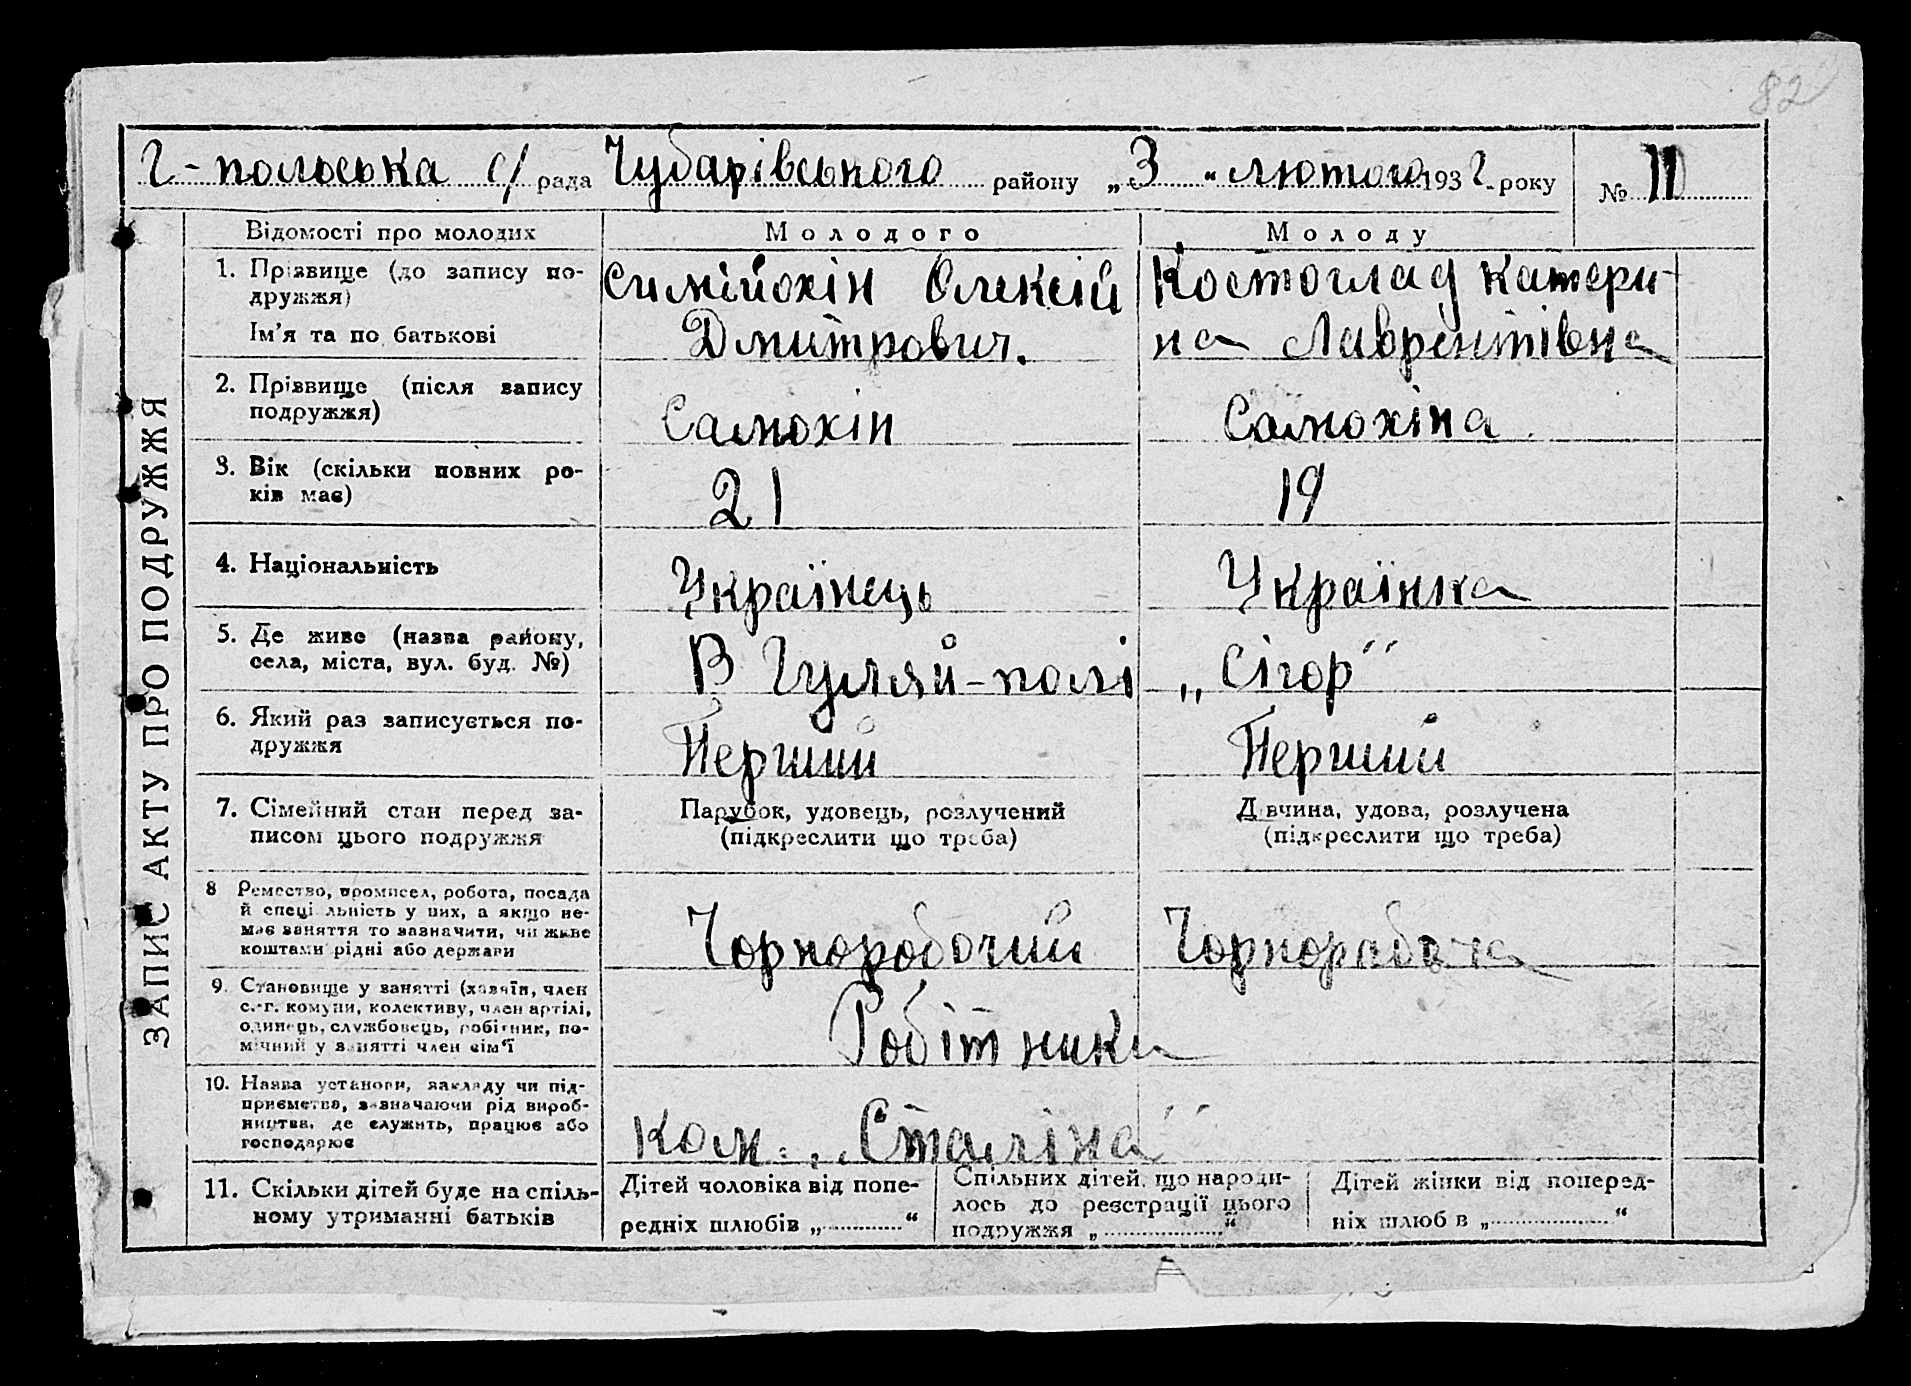 82
Г-польська с/ рада Чубарівського району „3“ лютого 1932. року № 11
ЗАПИС АКТУ ПРО ПОДРУЖЖЯ
Відомості про молодих
Молодого
Молоду
1. Прізвище (до запису по-
дружжя)
Ім'я та по батькові
Симійохін Олексій
Дмитрович.
Костоглад Катери-
на Лаврентівна
2. Прізвище (після запису
подружжя)
Самохін
Самохіна
3. Вік (скільки повних ро-
ків має)
21
19
4. Національність
Українець
Українка
5. Де живе (назва району,
села, міста, вул. буд. №)
В Гуляй-полі
„Сігор"
6. Який раз записується по-
дружжя
Перший
Перший
7. Сімейний стан перед за-
писом цього подружжя
Парубок, удовець, розлучений
(підкреслити що треба)
Дівчина, удова, розлучена
(підкреслити що треба)
8 Ремество, промисел, робота, посада
й спеціальність у них, а якщо не-
має заняття то зазначити, чи живе
коштами рідні або держави
Чорноробочий
Чорнорабоча
9. Становище у занятті (хазяїн, член
с.-г. комуни, колективу, член артілі,
одинець, службовець, робітник, по-
мічний у занятті член сім'ї
Робітники
10. Назва установи, закладу чи під-
приємства, зазначаючи рід вироб-
ництва, де служить, працює або
господарює
Ком. „Сталіна"
11. Скільки дітей буде на спіль-
ному утриманні батьків
Дітей чоловіка від попе-
редніх шлюбів „ “
Спільних дітей, що народи-
лось до реєстрації цього
подружжя „ “
Дітей жінки від поперед-
ніх шлюбів „ “